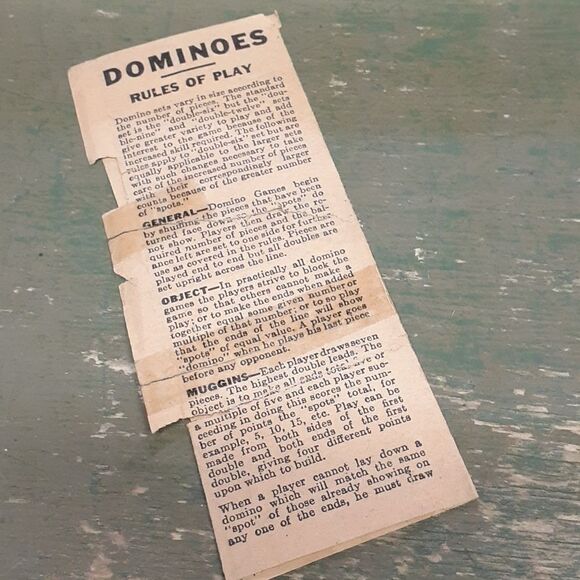 DOMINOES
RULES OF PLAY
Domino sets vary in size according to
the number of pieces. The standard
set is the "double-six" but the "dou-
ble-nine" and "double-twelve" sets
give greater variety to play and add
interest to the game because of the
increased skill required. The following
rules apply to "double-six" set but are
equally applicable to the larger sets
with such changes necessary to take
care of the increased number of pieces
with their correspondingly larger
counts because of the greater number
of "spots."
GENERAL—Domino Games begin
by shuffling the pieces that have been
turned face down so the "spots" do
not show. Players then draw the re-
quired number of pieces and the bal-
ance left are set to one side for further
use as covered in the rules. Pieces are
played end to end but all doubles are
set upright across the line.
OBJECT—In practically all domino
games the players strive to block the
game so that others cannot make a
play; or to make the ends when added
together equal some given number or
multiple of that number; or to so play
that the ends of the line will show
"spots" of equal value. A player goes
"domino" when he plays his last piece
before any opponent.
MUGGINS—Each player draws seven
pieces. The highest double leads. The
object is to make all ends total five or
a multiple of five and each player suc-
ceeding in doing this scores the num-
ber of points the "spots" total, for
example, 5, 10, 15, etc. Play can be
made from both sides of the first
double and both ends of the first
double, giving four different points
upon which to build.
When a player cannot lay down a
domino which will match the same
"spot" of those already showing on
any one of the ends, he must draw